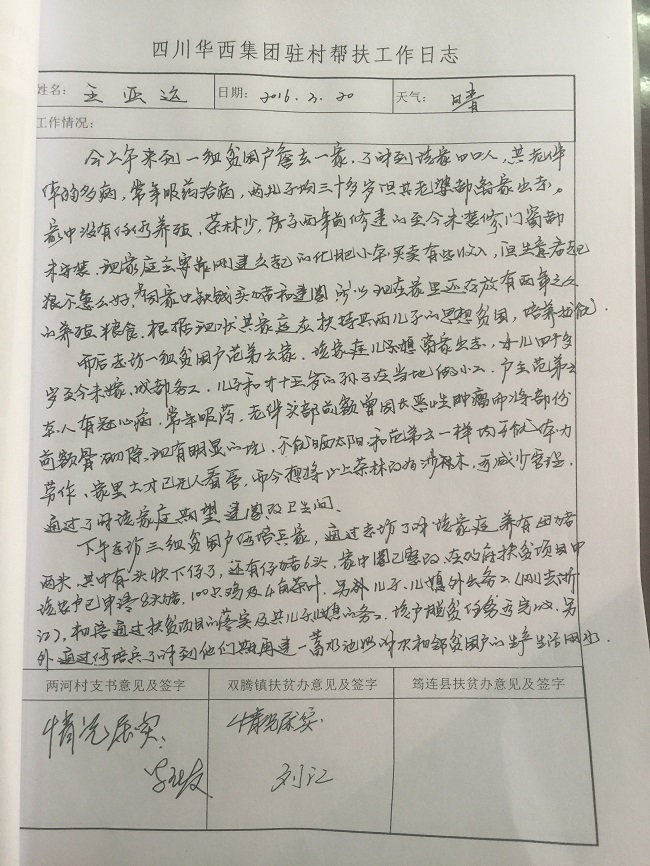 四川华西集团驻村帮扶工作日志
姓名： 王亚运 日期： 2016.3.20 天气： 晴
工作情况：
今上午来到一组贫困户詹去一家，了解到该家四口人，其老伴
体弱多病，常年服药治病，两儿子均三十多岁但其老婆都离家出走。
家中没有任何养殖，茶林少，房子两年前修建的至今未装修门窗都
未安装，现家庭主要靠刚建立起的化肥小本买卖有些收入，但生意看起
很不怎么好，因家中缺钱买猪和建圈所以现在家里还存放有两年之久
的养殖粮食。根据现状其家庭应扶持其两儿子的思想贫困，培养技能。
而后走访一组贫困户范弟云家，该家庭儿子媳离家出走，女儿四十多
岁至今未嫁，成都务工，儿子和才十五岁的孙子在当地做小工，户主范弟云
本人有冠心病，常年服药，老伴头部前额曾因长恶性肿瘤而将部份
前额骨切除，现有明显的坑，不能晒太阳，和范弟云一样均无能体力
劳作，家里土地已无人看管，而今想将以上茶林改为沙棘木，可减少管理，
通过了解该家庭期望建圈改卫生间。
下午走访三组贫困户何培兵家，通过走访了解该家庭养有母猪
两头，其中有一头快下仔了，还有仔猪6头，家中圈已整改，在政府扶贫项目中
该农户已申请8头猪，100只鸡及4亩茶叶，另外儿子、儿媳外出务工（刚去浙
江），相信通过扶贫项目的落实及其儿子儿媳的务工，该户脱贫任务近完成，另
外通过何培兵了解到他们期再建一蓄水池以解决和邻贫困户的生产生活用水。
两河村支书意见及签字 双腾镇扶贫办意见及签字 筠连县扶贫办意见及签字
情况属实. 情况属实.
刘江